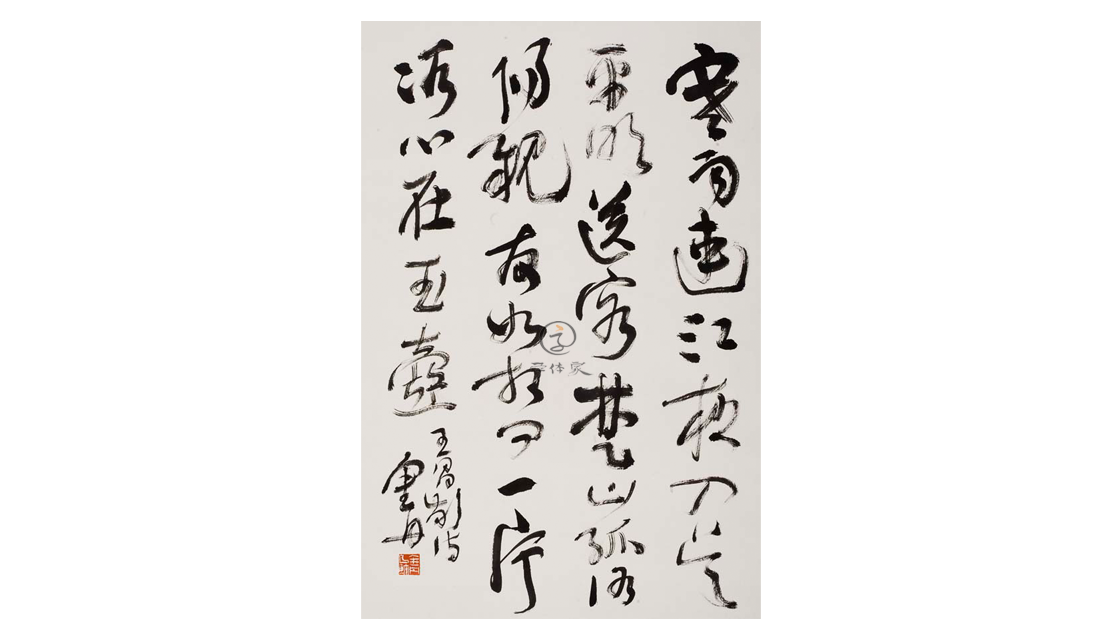 寒雨連江夜入吴
平明送客楚山孤洛
陽親友如相问一片
冰心在玉壺
王昌齡诗
字体家